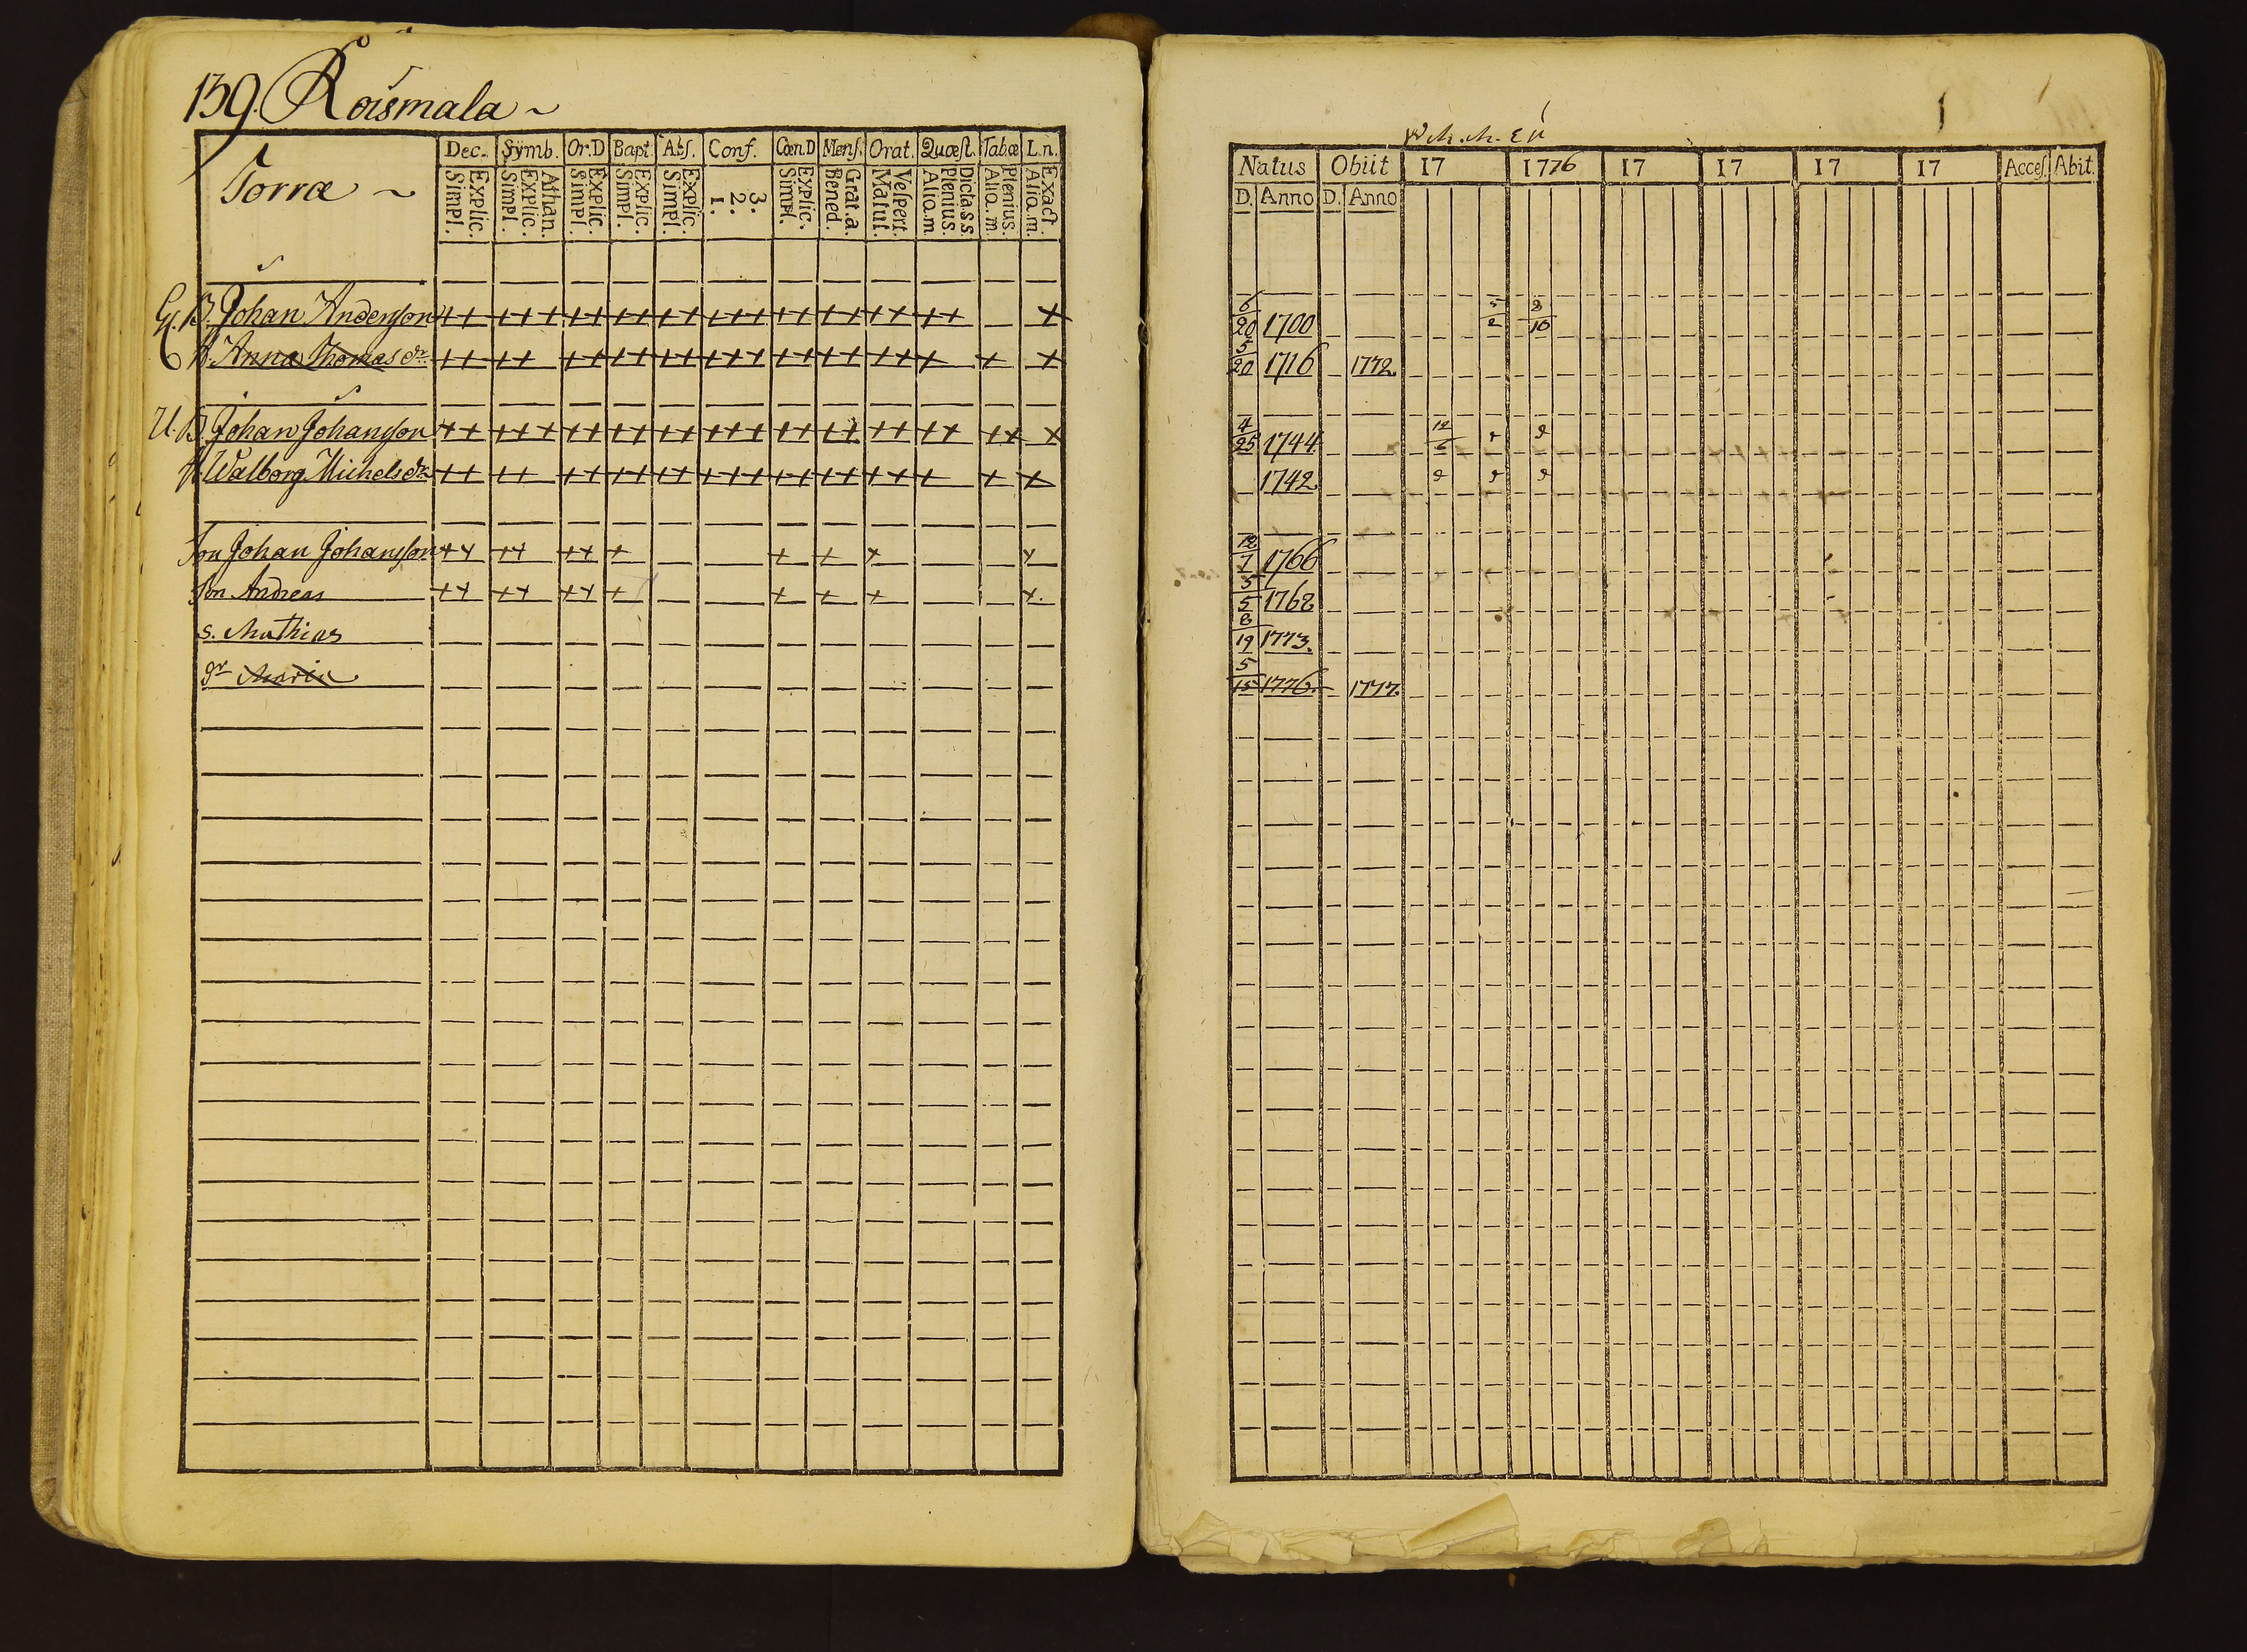 139. Koismala ~
Torra ~
Dec. Symb. Or.D Bapt. Abs. Conf. Cœn.D Mens. Orat. Quæst. Tab.æ L.n.
Simpl. Explic. Simpl. Explic. Athan. Simpl. Explic. Simpl. Explic. Simpl. Explic. 1. 2. 3. Simpl. Explic. Bened. Grat.a Matut. Vespert. Aliq.m Plenius. Dicta.s.s. Aliq.m Plenius. Aliq.m Exact.
B. Johan Anderson ++ +++ ++ ++ ++ +++ ++ ++ ++ ++ +
H. Anna Thomas dr. ++ ++ ++ ++ ++ +++ ++ ++ ++ + + +
U. B. Johan Johanson ++ +++ ++ ++ ++ +++ ++ ++ ++ ++ ++ +
H. Walborg Michels dr ++ ++ ++ ++ ++ +++ ++ ++ ++ + + +
Son Johan Johanson ++ ++ ++ + + + + +
Son Andreas ++ ++ ++ + + + + +.
s. Mathias
dr Maria
Natus Obiit 17 1776 17 17 17 17 Acces. Abit.
D. Anno D. Anno
6/20 1700 5/2 8/10
5/20 1716 1772.
4/25 1744.
1742.
12/7 1766
5/5 1768
8/19 1773.
5/15 1776. 1777.